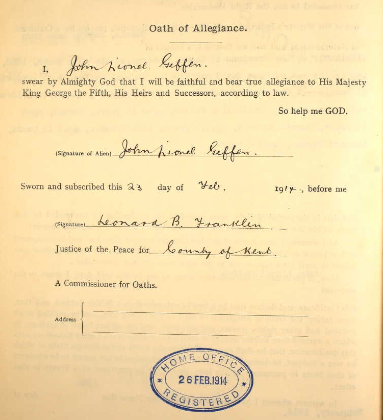 Oath of Allegiance.
I, John Lionel Geffen.
swear by Almighty God that I will be faithful and bear true allegiance to His Majesty
King George the Fifth, His Heirs and Successors, according to law.
So help me GOD.
(Signature of Alien) John Lionel Geffen.
Sworn and subscribed this 23 day of Feb. 1914, before me
(Signature) Leonard B. Franklin
Justice of the Peace for County of Kent.
A Commissioner for Oaths.
Address
HOME OFFICE
26 FEB. 1914
REGISTERED